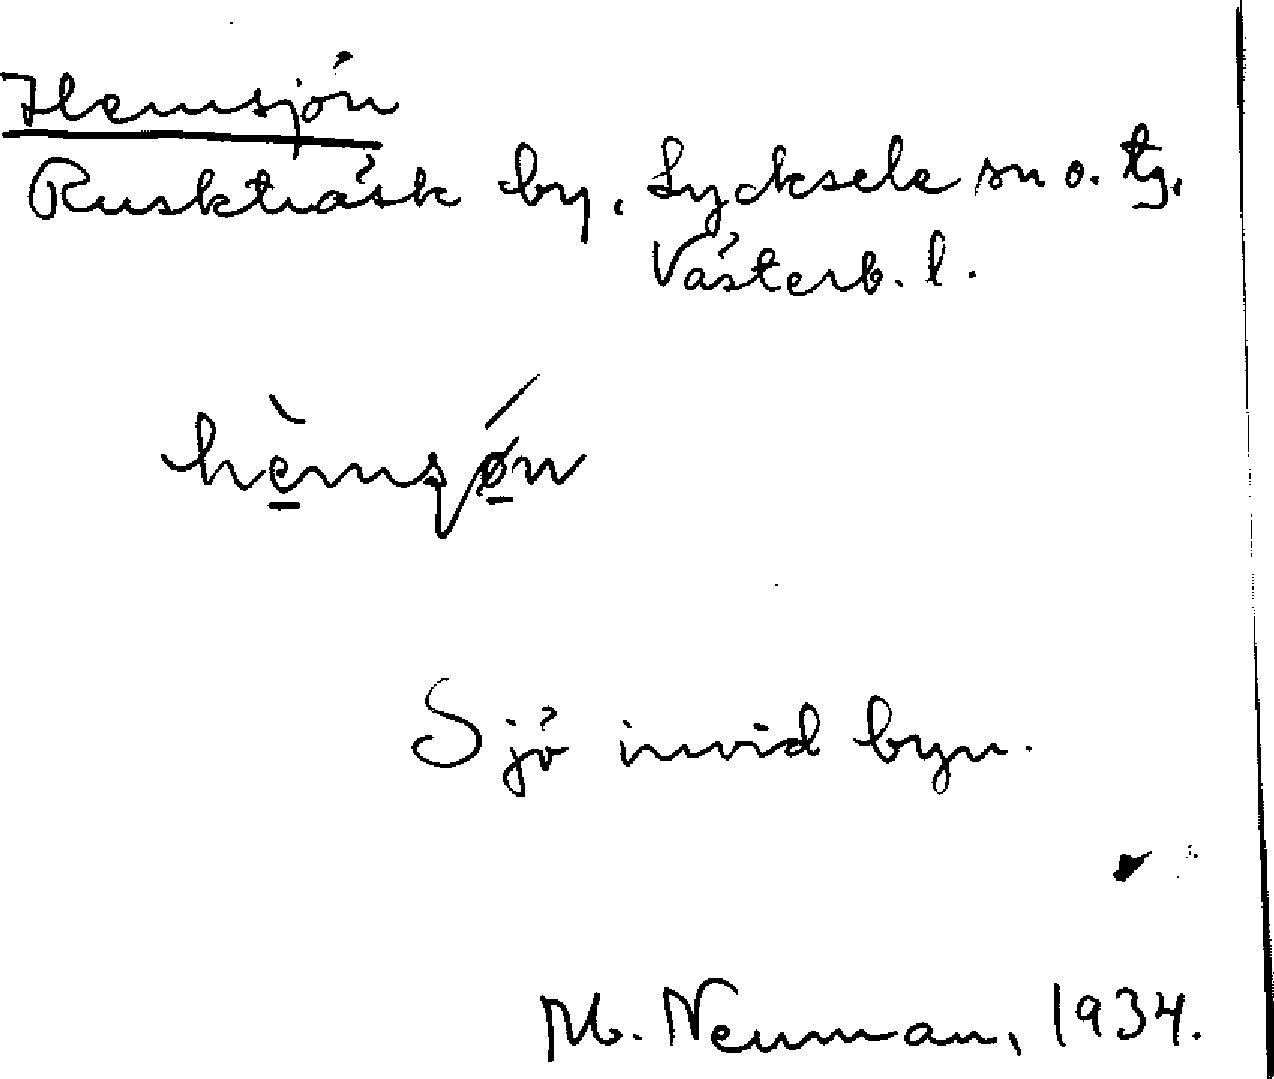 Hemsjön
Ruskträsk by, Lycksele sn o. tg.
Västerb. l.
Sjö invid byn.
M. Neuman, 1934.